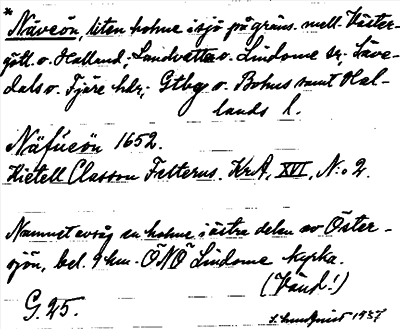 *
Näveön, liten holme i sjö på gräns. mell. Väster-
götl. o. Halland; Landvetter o. Lindome sr, Säve-
dals o. Fjäre hdr, Gtbg o. Bohus samt Hal-
lands l.
Näfueön 1652.
Kietell Classon Felterus. KrA, XVI, N:o 2.
Namnet avsåg en holme i östra delen av Öster-
sjön, bel. 9 km. ÖNÖ Lindome kyrka.
(Vänd!)
G. 25.
1937